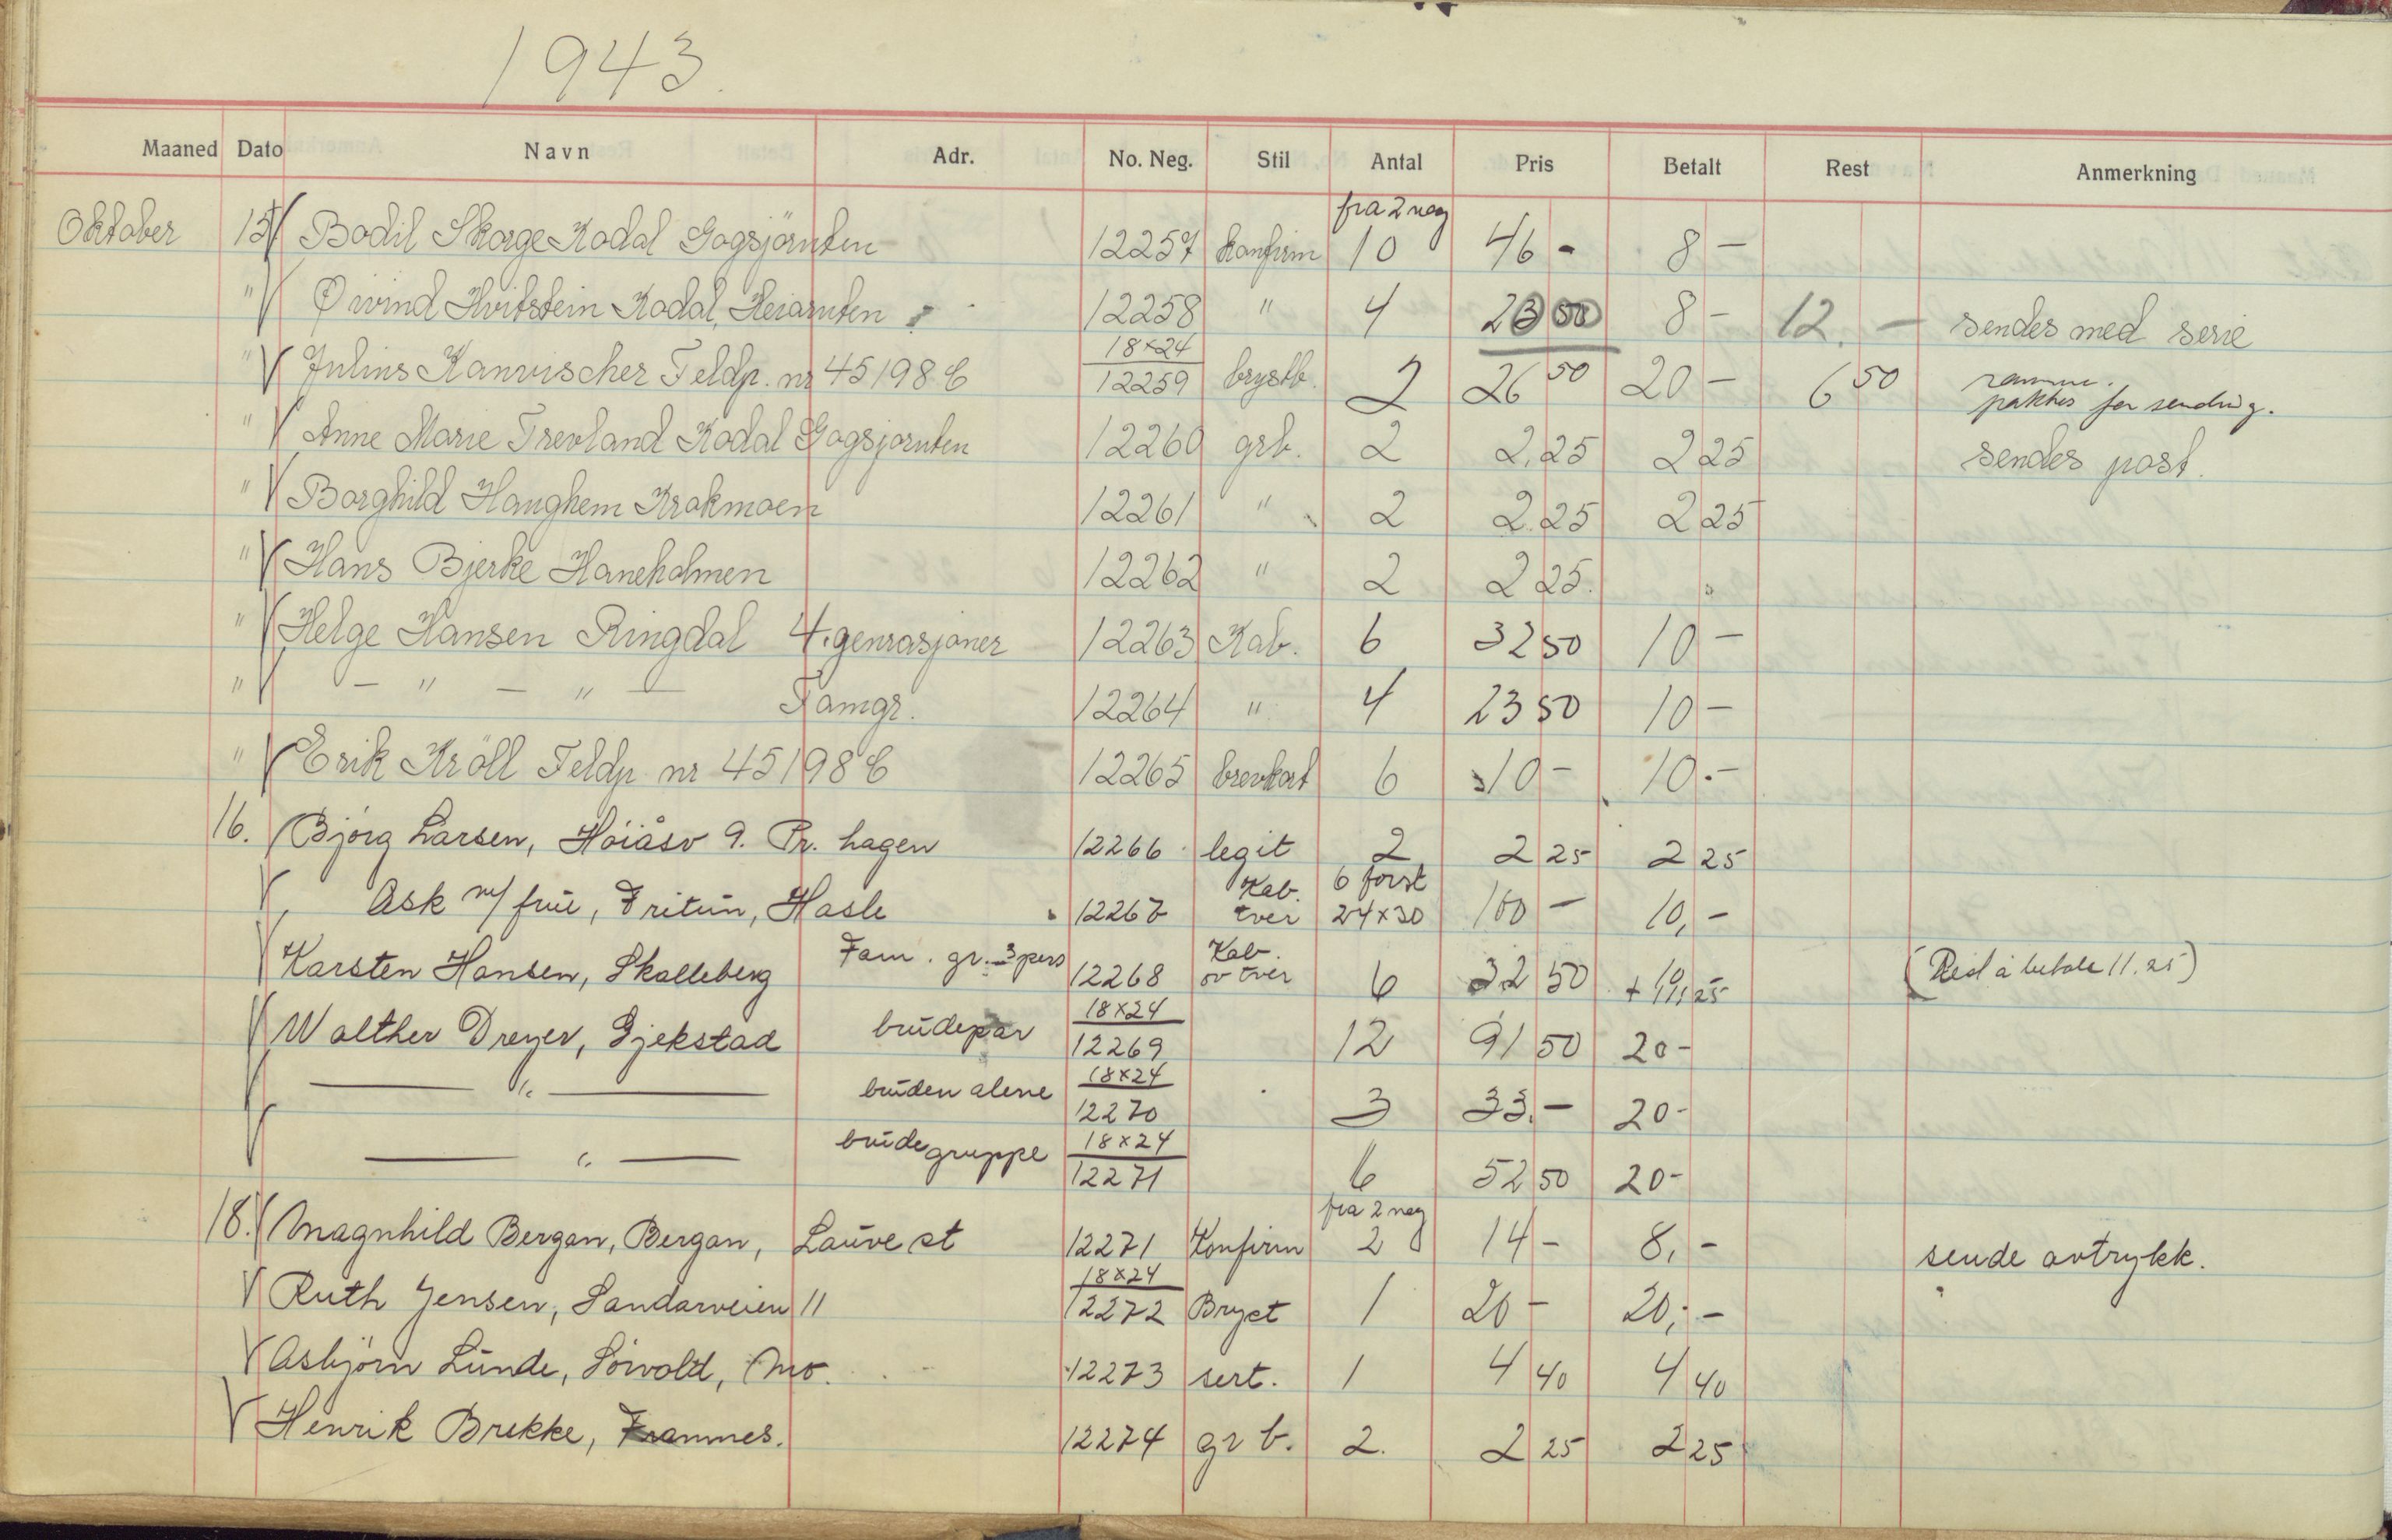 1943.
Maaned Dato Navn Adr. No. Neg. Stil Antal Pris Betalt Rest Anmerkning
Oktober 15 Bodil Skorge Kodal Gogsjöruten 12257 konfirm fra 2 neg 10 46 - 8 -
" Øivind Hvitstein Kodal, Heiaruten 12258 " 4 8 - 12. - sendes med serie
" Julius Kanvischer Feldp. nr 45198 C 18×24 12259 brystb. 2 26 50 20 - 6 50 ramme. pakkes for sending.
" Anne Marie Trevland Kodal Gogsjoruten 12260 grb. 2 2,25 2 25 sendes post.
" Borghild Haughem Krokmoen 12261 " 2 2.25 2 25
" Hans Bjerke Haneholmen 12262 " 2 2 25.
" Helge Hansen Ringdal 4. genrasjoner 12263 Kab. 6 32 50 10 -
" - " - " - Famgr. 12264 " 4 23 50 10 -
" Erik Kröll Feldp. nr 45198 C 12265 brevkort 6 10 - 10.-
16. Bjørg Larsen, Høiåsv 9. Pr. hagen 12266 legit 2 2 25 2 25
Ask m/ frue, Fritun, Hasle 12267 Kab. tver 6 først 24×30 100 - 10,-
Karsten Hansen, Skalleberg Fam. gr. 3 pers 12268 Kab. ov tver 6 32 50 10 + 11,25 (Rest å betale 11.25)
Walther Dreyer, Gjekstad brudepar 18×24 12269 12 91 50 20 -
— " — bruden alene 18×24 12270 3 33.- 20 -
— " — brudegruppe 18×24 12271 6 52 50 20 -
18. Magnhild Bergan, Bergan, Lauve st 12271 Konfirm fra 2 neg 2 14 - 8,- sende avtrykk.
Ruth Jensen, Sandarveien 11 18×24 12272 Bryst 1 20 - 20,-
Asbjørn Lunde, Sörvold, Mo. 12273 sert. 1 4 40 4 40
Henrik Brekke, Frammes. 12274 gr b. 2. 2 25 2 25